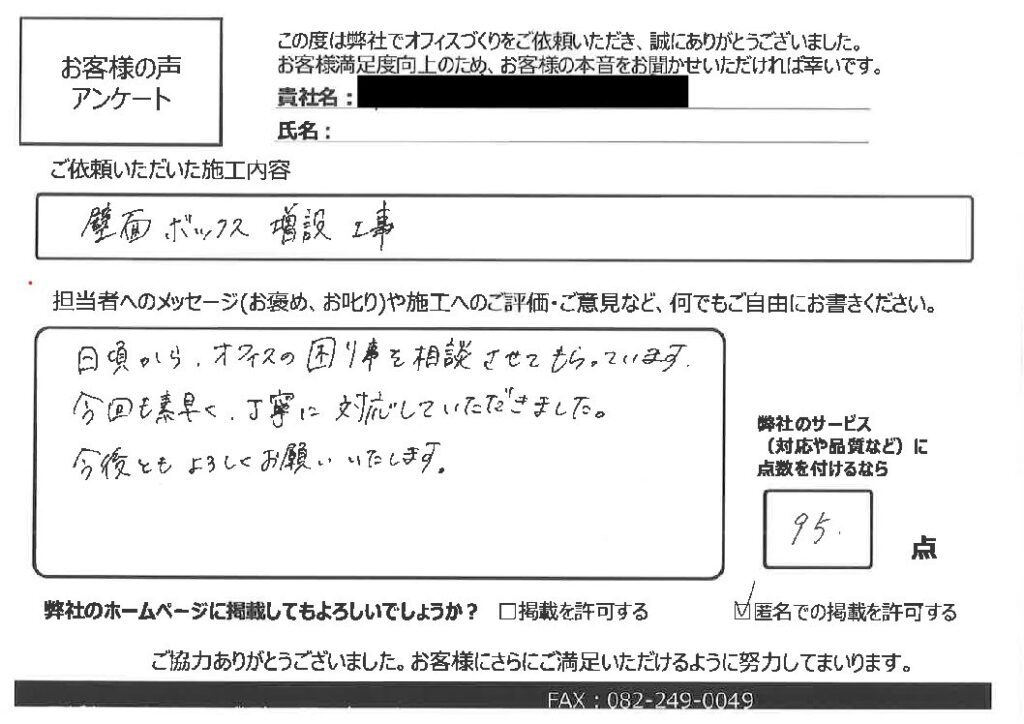 お客様の声
アンケート
この度は弊社でオフィスづくりをご依頼いただき、誠にありがとうございました。
お客様満足度向上のため、お客様の本音をお聞かせいただければ幸いです。
貴社名：
氏名：
ご依頼いただいた施工内容
壁面ボックス 増設 工事
担当者へのメッセージ(お褒め、お叱り)や施工へのご評価・ご意見など、何でもご自由にお書きください。
日頃から、オフィスの困り事を相談させてもらっています。
今回も素早く、丁寧に対応していただきました。
今後ともよろしくお願いいたします。
弊社のサービス
（対応や品質など）に
点数を付けるなら
95.
点
弊社のホームページに掲載してもよろしいでしょうか？ □掲載を許可する ☑匿名での掲載を許可する
ご協力ありがとうございました。お客様にさらにご満足いただけるように努力してまいります。
FAX：082-249-0049